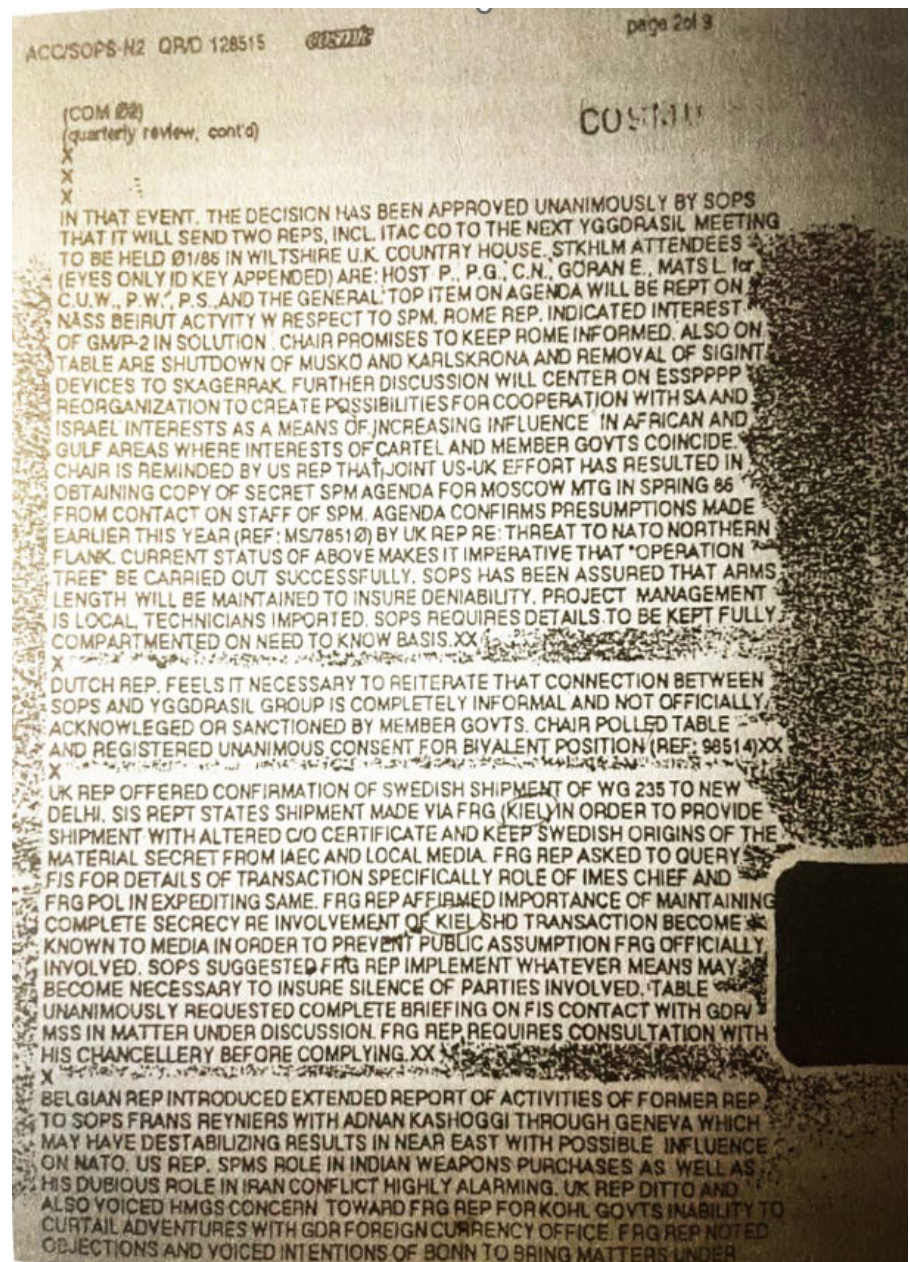 page 2of 9
ACC/SOPS-N2 QR/D 128515 cosmic
(COM Ø2)
(quarterly review, cont'd)
X
X
X
IN THAT EVENT. THE DECISION HAS BEEN APPROVED UNANIMOUSLY BY SOPS
THAT IT WILL SEND TWO REPS, INCL. ITAC CO TO THE NEXT YGGDRASIL MEETING
TO BE HELD Ø1/86 IN WILTSHIRE U.K. COUNTRY HOUSE. STKHLM ATTENDEES
(EYES ONLY ID KEY APPENDED) ARE: HOST P., P.G., C.N., GORAN E., MATS L. for
C.U.W., P.W., P.S. AND THE GENERAL. TOP ITEM ON AGENDA WILL BE REPT ON
NASS BEIRUT ACTVITY W RESPECT TO SPM. ROME REP. INDICATED INTEREST
OF GM/P-2 IN SOLUTION. CHAIR PROMISES TO KEEP ROME INFORMED. ALSO ON
TABLE ARE SHUTDOWN OF MUSKO AND KARLSKRONA AND REMOVAL OF SIGINT
DEVICES TO SKAGERRAK. FURTHER DISCUSSION WILL CENTER ON ESSPPPP
REORGANIZATION TO CREATE POSSIBILITIES FOR COOPERATION WITH SA AND
ISRAEL INTERESTS AS A MEANS OF INCREASING INFLUENCE IN AFRICAN AND
GULF AREAS WHERE INTERESTS OF CARTEL AND MEMBER GOVTS COINCIDE.
CHAIR IS REMINDED BY US REP THAT JOINT US-UK EFFORT HAS RESULTED IN
OBTAINING COPY OF SECRET SPM AGENDA FOR MOSCOW MTG IN SPRING 86
FROM CONTACT ON STAFF OF SPM. AGENDA CONFIRMS PRESUMPTIONS MADE
EARLIER THIS YEAR (REF: MS/7851Ø) BY UK REP RE: THREAT TO NATO NORTHERN
FLANK. CURRENT STATUS OF ABOVE MAKES IT IMPERATIVE THAT "OPERATION
TREE" BE CARRIED OUT SUCCESSFULLY. SOPS HAS BEEN ASSURED THAT ARMS
LENGTH WILL BE MAINTAINED TO INSURE DENIABILITY. PROJECT MANAGEMENT
IS LOCAL, TECHNICIANS IMPORTED. SOPS REQUIRES DETAILS TO BE KEPT FULLY
COMPARTMENTED ON NEED TO KNOW BASIS.XX
X
DUTCH REP. FEELS IT NECESSARY TO REITERATE THAT CONNECTION BETWEEN
SOPS AND YGGDRASIL GROUP IS COMPLETELY INFORMAL AND NOT OFFICIALLY
ACKNOWLEGED OR SANCTIONED BY MEMBER GOVTS. CHAIR POLLED TABLE
AND REGISTERED UNANIMOUS CONSENT FOR BIVALENT POSITION (REF: 98514)XX
X
UK REP OFFERED CONFIRMATION OF SWEDISH SHIPMENT OF WG 235 TO NEW
DELHI. SIS REPT STATES SHIPMENT MADE VIA FRG (KIEL) IN ORDER TO PROVIDE
SHIPMENT WITH ALTERED C/O CERTIFICATE AND KEEP SWEDISH ORIGINS OF THE
MATERIAL SECRET FROM IAEC AND LOCAL MEDIA. FRG REP ASKED TO QUERY
FIS FOR DETAILS OF TRANSACTION SPECIFICALLY ROLE OF IMES CHIEF AND
FRG POL IN EXPEDITING SAME. FRG REP AFFIRMED IMPORTANCE OF MAINTAINING
COMPLETE SECRECY RE INVOLVEMENT OF KIEL SHD TRANSACTION BECOME
KNOWN TO MEDIA IN ORDER TO PREVENT PUBLIC ASSUMPTION FRG OFFICIALLY
INVOLVED. SOPS SUGGESTED FRG REP IMPLEMENT WHATEVER MEANS MAY
BECOME NECESSARY TO INSURE SILENCE OF PARTIES INVOLVED. TABLE
UNANIMOUSLY REQUESTED COMPLETE BRIEFING ON FIS CONTACT WITH GDR/
MSS IN MATTER UNDER DISCUSSION. FRG REP REQUIRES CONSULTATION WITH
HIS CHANCELLERY BEFORE COMPLYING.XX
X
BELGIAN REP INTRODUCED EXTENDED REPORT OF ACTIVITIES OF FORMER REP
TO SOPS FRANS REYNIERS WITH ADNAN KASHOGGI THROUGH GENEVA WHICH
MAY HAVE DESTABILIZING RESULTS IN NEAR EAST WITH POSSIBLE INFLUENCE
ON NATO. US REP. SPMS ROLE IN INDIAN WEAPONS PURCHASES AS WELL AS
HIS DUBIOUS ROLE IN IRAN CONFLICT HIGHLY ALARMING. UK REP DITTO AND
ALSO VOICED HMGS CONCERN TOWARD FRG REP FOR KOHL GOVTS INABILITY TO
CURTAIL ADVENTURES WITH GDR FOREIGN CURRENCY OFFICE. FRG REP NOTED
OBJECTIONS AND VOICED INTENTIONS OF BONN TO BRING MATTERS UNDER